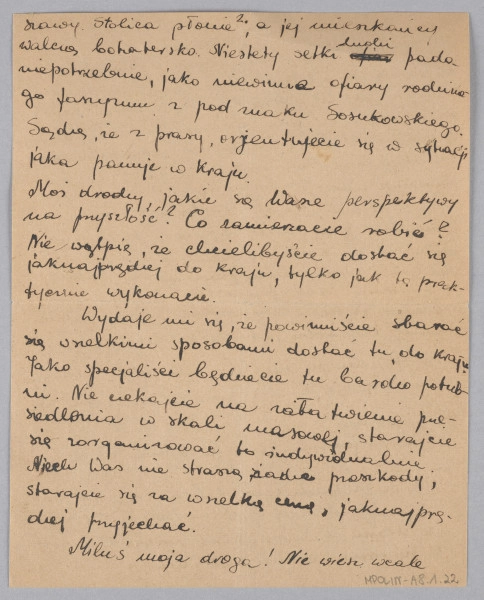 szawy. Stolica płonie?, a jej mieszkańcy
walczą bohatersko. Niestety setki ludzi pada
niepotrzebnie, jako niewinne ofiary rodzime-
go faszyzmu z pod znaku Sosnkowskiego.
Sądzę, że z prasy, orjentujecie się w sytuacji
jaka panuje w kraju.
Moi drodzy, jakie są Wasze perspektywy
na przyszłość? Co zamierzacie robić?
Nie wątpię, że chcielibyście dostać się
jaknajprędzej do kraju, tylko jak to prak-
tycznie wykonacie.
Wydaje mi się, że powinniście starać
się wszelkimi sposobami dostać tu, do kraju
Jako specjaliści będziecie tu bardzo potrzeb-
ni. Nie czekajcie na załatwienie prze-
siedlenia w skali masowej, starajcie
się zorganizować to indywidualnie.
Niech Was nie straszą żadne przeszkody,
starajcie się za wszelką cenę, jaknajprę-
dzej przyjechać.
Miluś moja droga! Nie wiesz wcale
MPOLIN-A8.1.22